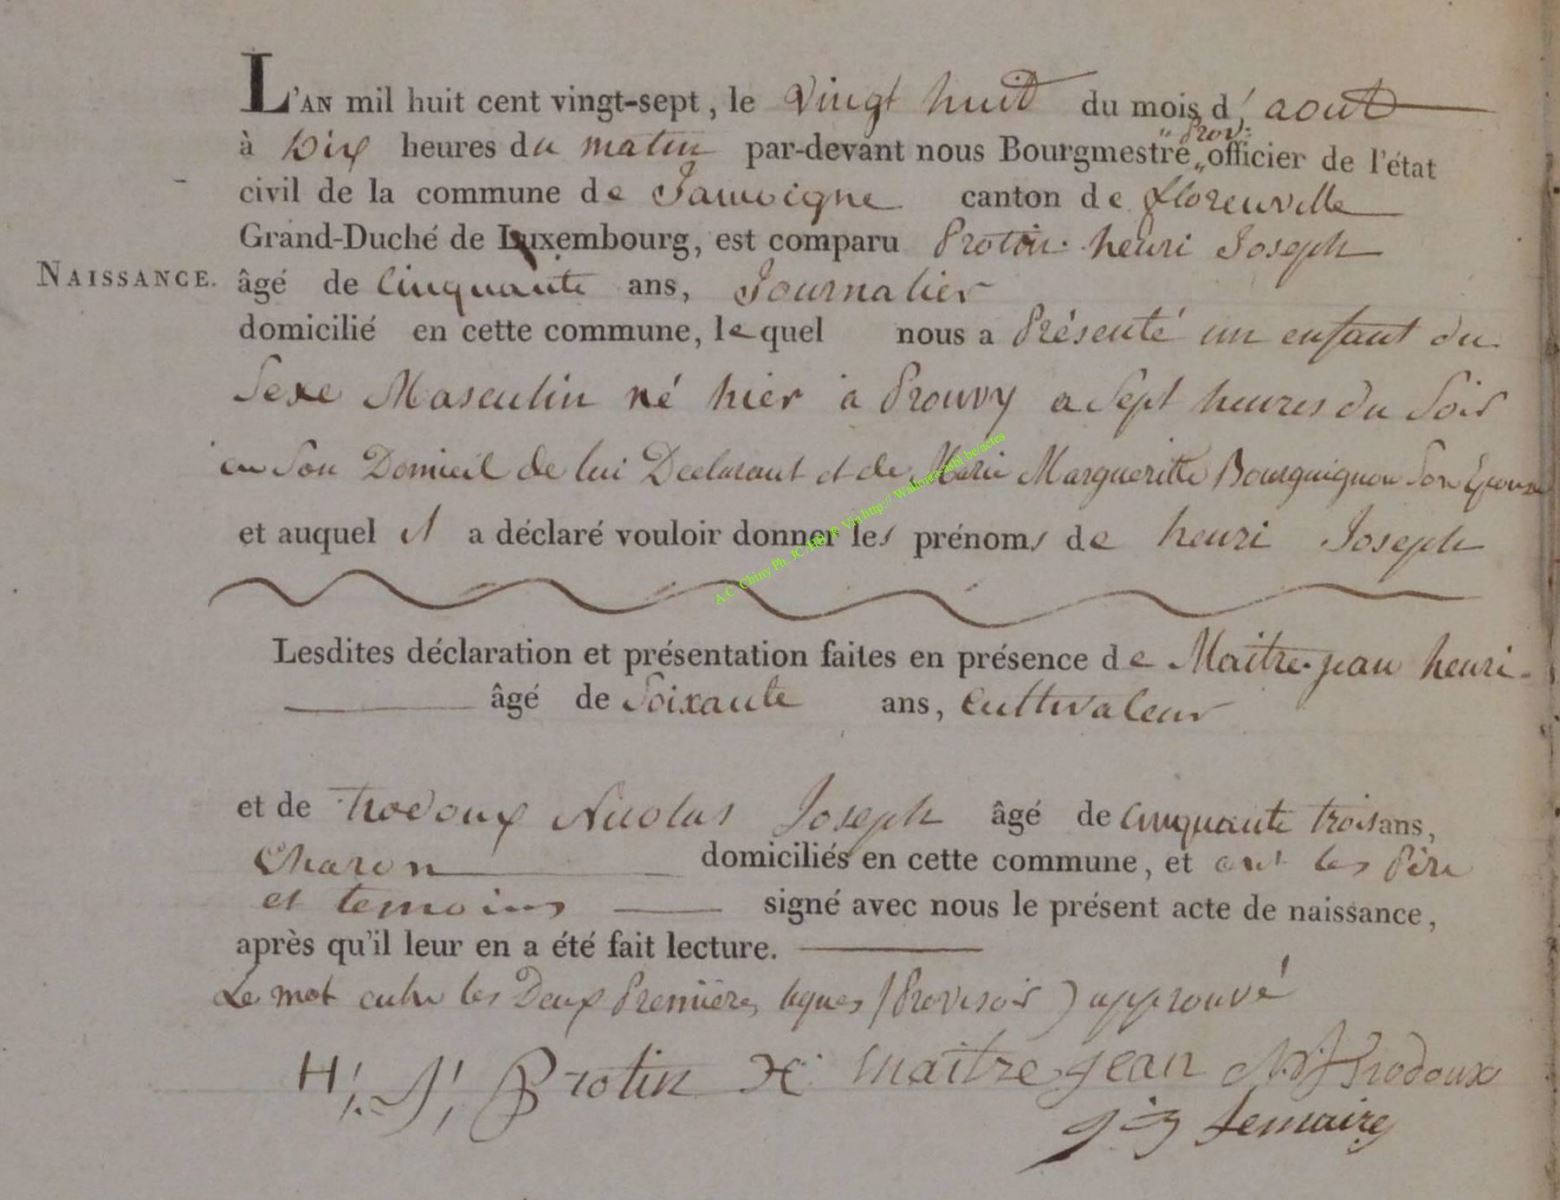 L'AN mil huit cent vingt-sept, le vingt huit du mois d'aout
" Prov:
à Dix heures du matin par-devant nous Bourgmestre „ officier de l'état
civil de la commune de Jamoigne canton de florenville
Grand-Duché de Luxembourg, est comparu Protin henri Joseph
NAISSANCE. âgé de Cinquante ans, Journalier
domicilié en cette commune, lequel nous a Présenté un enfant du
Sexe Masculin né hier a Prouvy a Sept heures du Soir
en Son Domicil de lui Declarant et de Marie Margueritte Bourguignon Son Epouse
et auquel il a déclaré vouloir donner les prénoms de henri Joseph
A.C. Chiny Ph. JC Via http:// Wallonia-asbl.be/actes
Lesdites déclaration et présentation faites en présence de Maitre-jean henri
âgé de Soixante ans, Cultivateur
et de trodoux Nicolas Joseph âgé de Cinquante trois ans,
Charon domiciliés en cette commune, et ont les Père
et temoins signé avec nous le présent acte de naissance,
après qu'il leur en a été fait lecture.
Le mot entre les Deux Premières lignes (Provisoir) approuvé
H: J: Protin H: maitre jean N J Trodoux
Lemaire